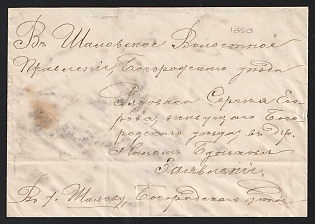 1880
Въ Шаловское Волостное
Правленіе, Богородскаго уѣзда
Рядоваго Сергея Его-
рова, живущаго Бого-
родскаго уѣзда, въ Дер.
Заявленіе.
Въ с. Шалову, Богородскаго уѣзда